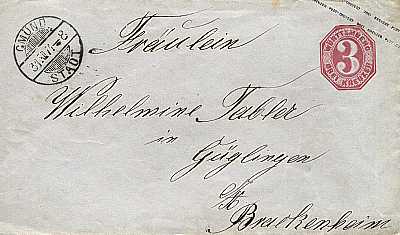 GMÜND
STADT
WÜRTTEMBERG
3
DREI KREUZER
Fräulein
Wilhelmine Tabler
in
Güglingen
Brackenheim